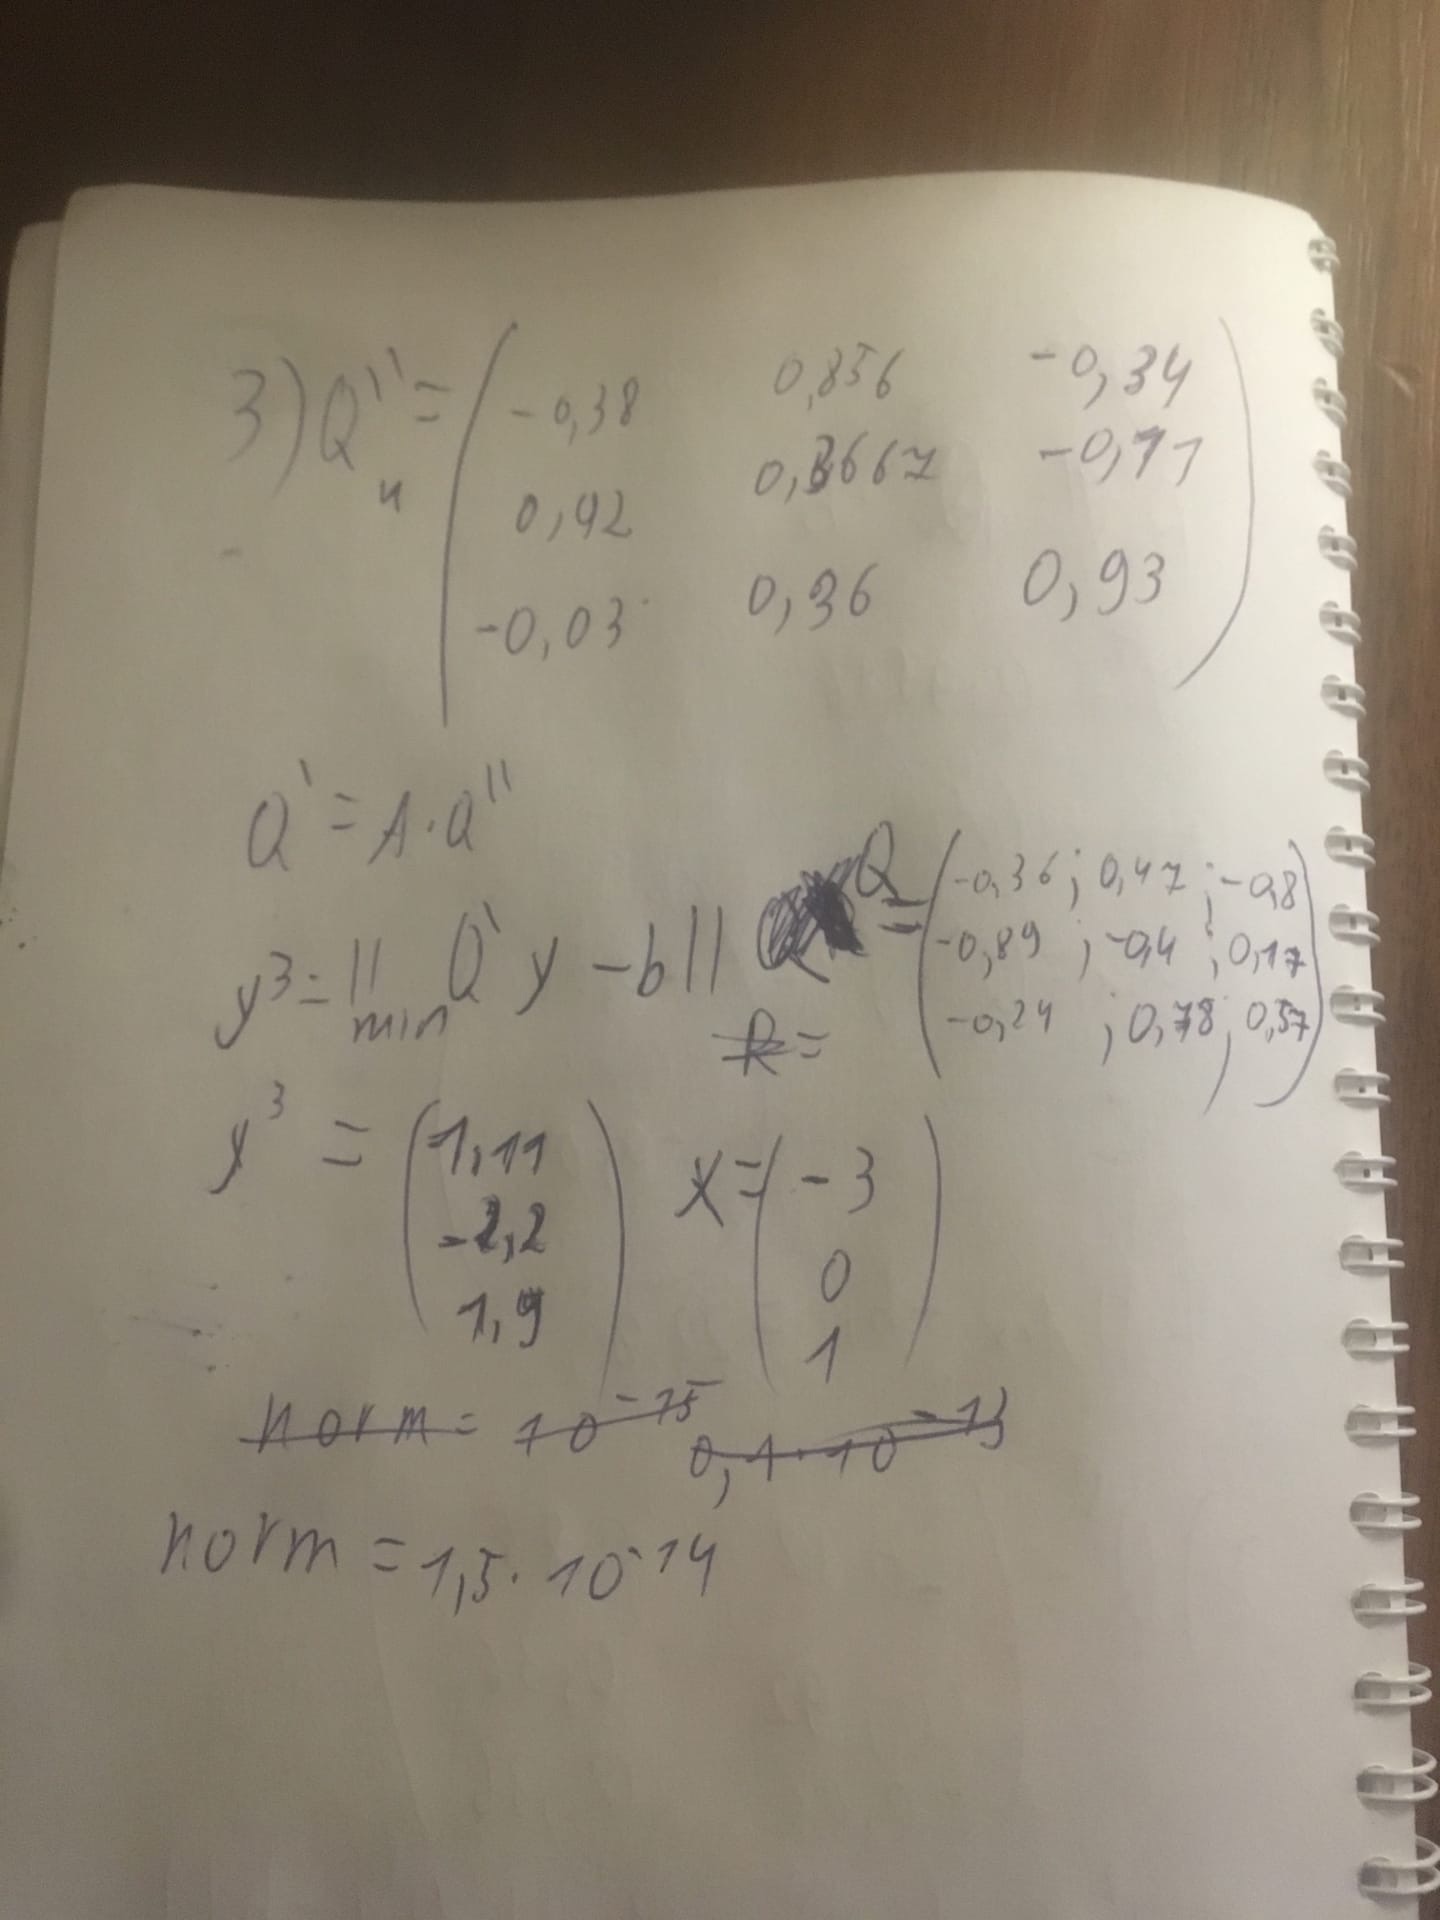 3) Q'' = ( -0,38 0,856 -0,34
н 0,92 0,3667 -0,11
-0,03 0,36 0,93 )
Q' = A·Q''
Q = ( -0,36 ; 0,47 ; -0,8
-0,89 ; -0,4 ; 0,17
-0,24 ; 0,78 ; 0,57 )
y³ = || Q' y - b ||
min
R =
y³ = ( 1,11
-2,2
1,9 )
x = ( -3
0
1 )
norm = 10⁻¹⁵ 0,1·10⁻¹³
norm = 1,5·10⁻¹⁴